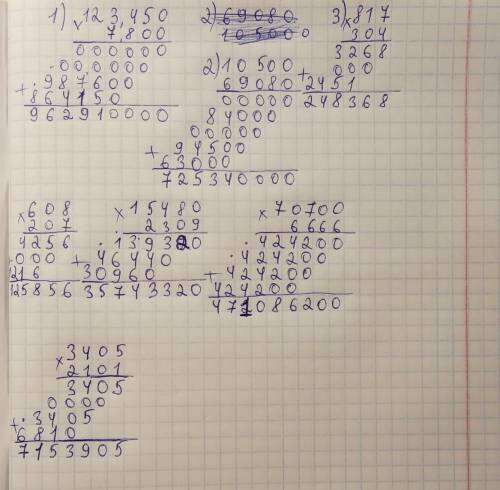 1) 123,450
× 7,800
000000
000000
+ 987600
864150
962910000
2) 69080
105000 0
2) 10500
69080
00000
84000
00000
+ 94500
63000
725340000
3) × 817
304
3268
+ 000
2451
248368
× 608
207
4256
+ 000
1216
125856
× 15480
2309
139320
+ 46440
30960
35743320
× 70700
6666
424200
424200
+ 424200
424200
471086200
× 3405
2101
3405
0000
+ 3405
6810
7153905